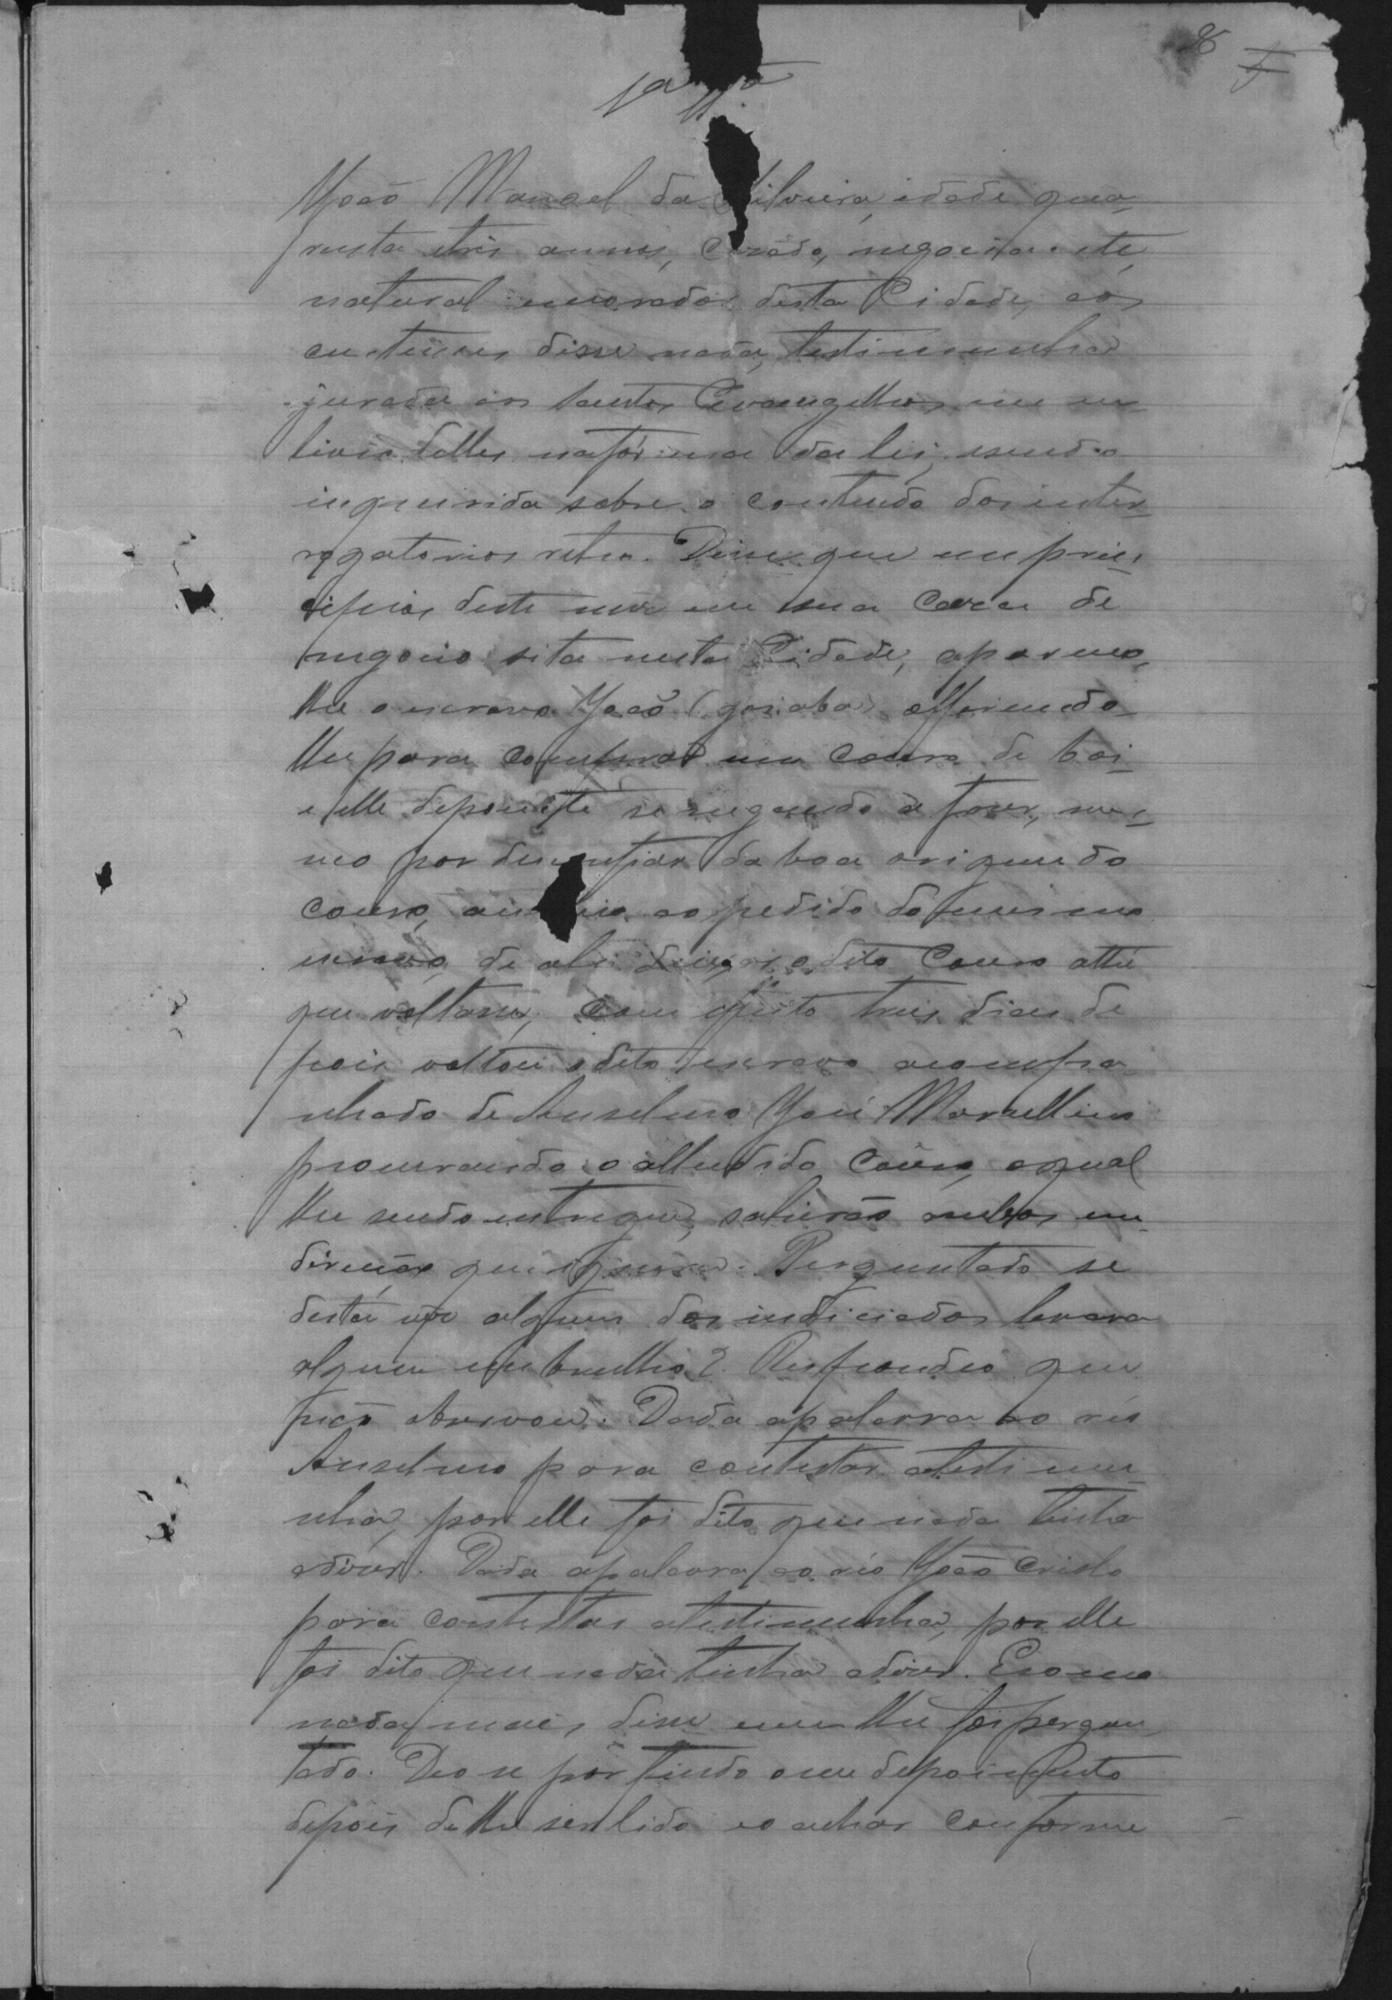 8
1ª Tª
João Manoel da Silveira, idade qua-
renta etres annos, Cazado, negociante,
natural emorador desta Cidade, aos
custumes disse nada, testimunha
jurada aos Santos Evangelhos em um
livro delles nafórma da lei, esendo
inquirida sobre o contendo dos inter-
rogatorios retro. Disse que em prin-
cipios deste mez em sua Caza de
negocio sita nesta Cidade, apareceo-
lhe o escravo João (goiaba) offerecendo-
lhe para comprar um Couro de boi
e elle deponente se negando a fazer, mes-
mo por desconfiar da boa origem do
Couro, ao pedido do mesmo
escravo, de ali deixar o dito Couro athé
que voltasse, Com effeito tres dias de
pois voltou o dito escravo acompa-
nhado de Anselmo José Marcellino
procurando o alludido Couro, oqual
lhe sendo entregue, sahirão ambos em
direção que ignora. Perguntado se
desta vez algum dos indiciados levava
algum embrulho? Respondeo que
não observou. Dada apalavra ao reo
Anselmo para contestar atestimu-
nha, por elle foi dito que nada tinha
adizer. Dada apalavra ao réo João Criolo
para contestar atestimunha, por elle
foi dito que nada tinha adizer. Ecomo
nada mais disse nem lhe foi pergun-
tado. Deo se por findo oseu depoimento
depois delhe ser lido eo achar conforme